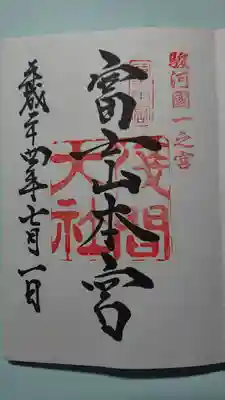 駿河國一之宮
富士山本宮
淺間大社
平成二十四年七月一日